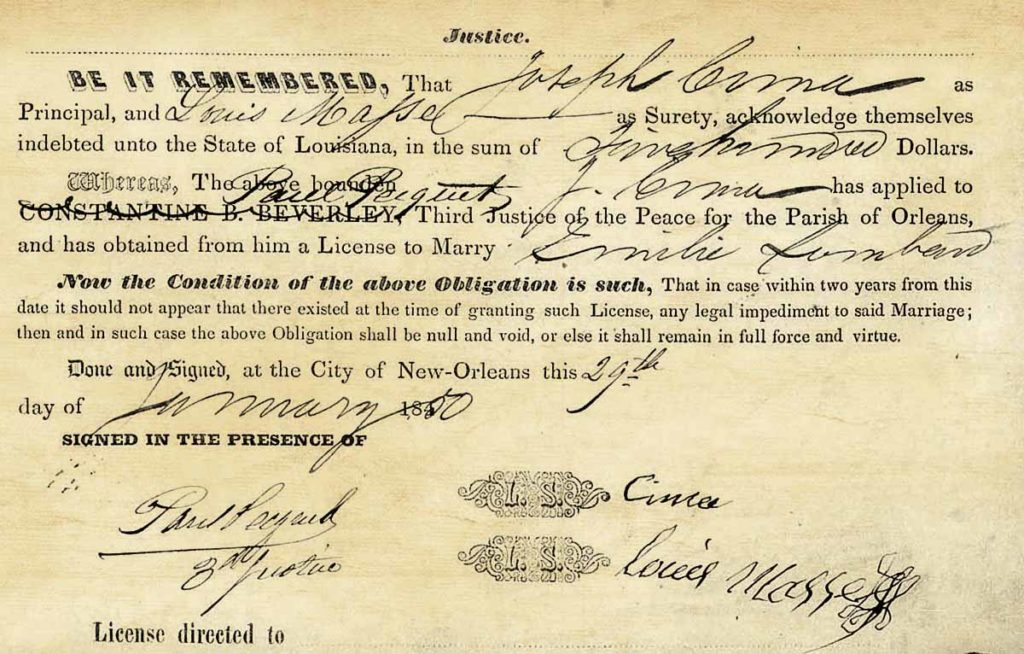 Justice.
BE IT REMEMBERED, That Joseph Cima as
Principal, and Louis Masse as Surety, acknowledge themselves
indebted unto the State of Louisiana, in the sum of Five hundred Dollars.
Whereas, The above bounden J. Cima has applied to
Paul
CONSTANTINE B. BEVERLEY, Third Justice of the Peace for the Parish of Orleans,
and has obtained from him a License to Marry Emilie Lombard
Now the Condition of the above Obligation is such, That in case within two years from this
date it should not appear that there existed at the time of granting such License, any legal impediment to said Marriage;
then and in such case the above Obligation shall be null and void, or else it shall remain in full force and virtue.
Done and Signed, at the City of New-Orleans this 29th
day of January 1850
SIGNED IN THE PRESENCE OF
L. S. Cima
Paul
3d Justice
L. S. Louis Masse
License directed to